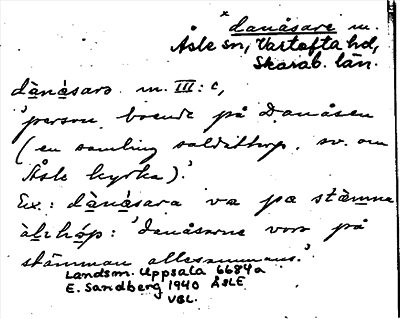 × danåsare m.
Åsle sn, Vartofta hd,
Skarab. län.
da̱nåsarə m. III: c,
'person boende på Danåsen
(en samling soldattorp, sv. om
Åsle kyrka).'
Ex.: da̱nåsara va pæ stæmna
'danåsarne vora på
stämman allesammans.'
Landsm. Uppsala 6684a
E. Sandberg 1940 ÅSLE
VBL.